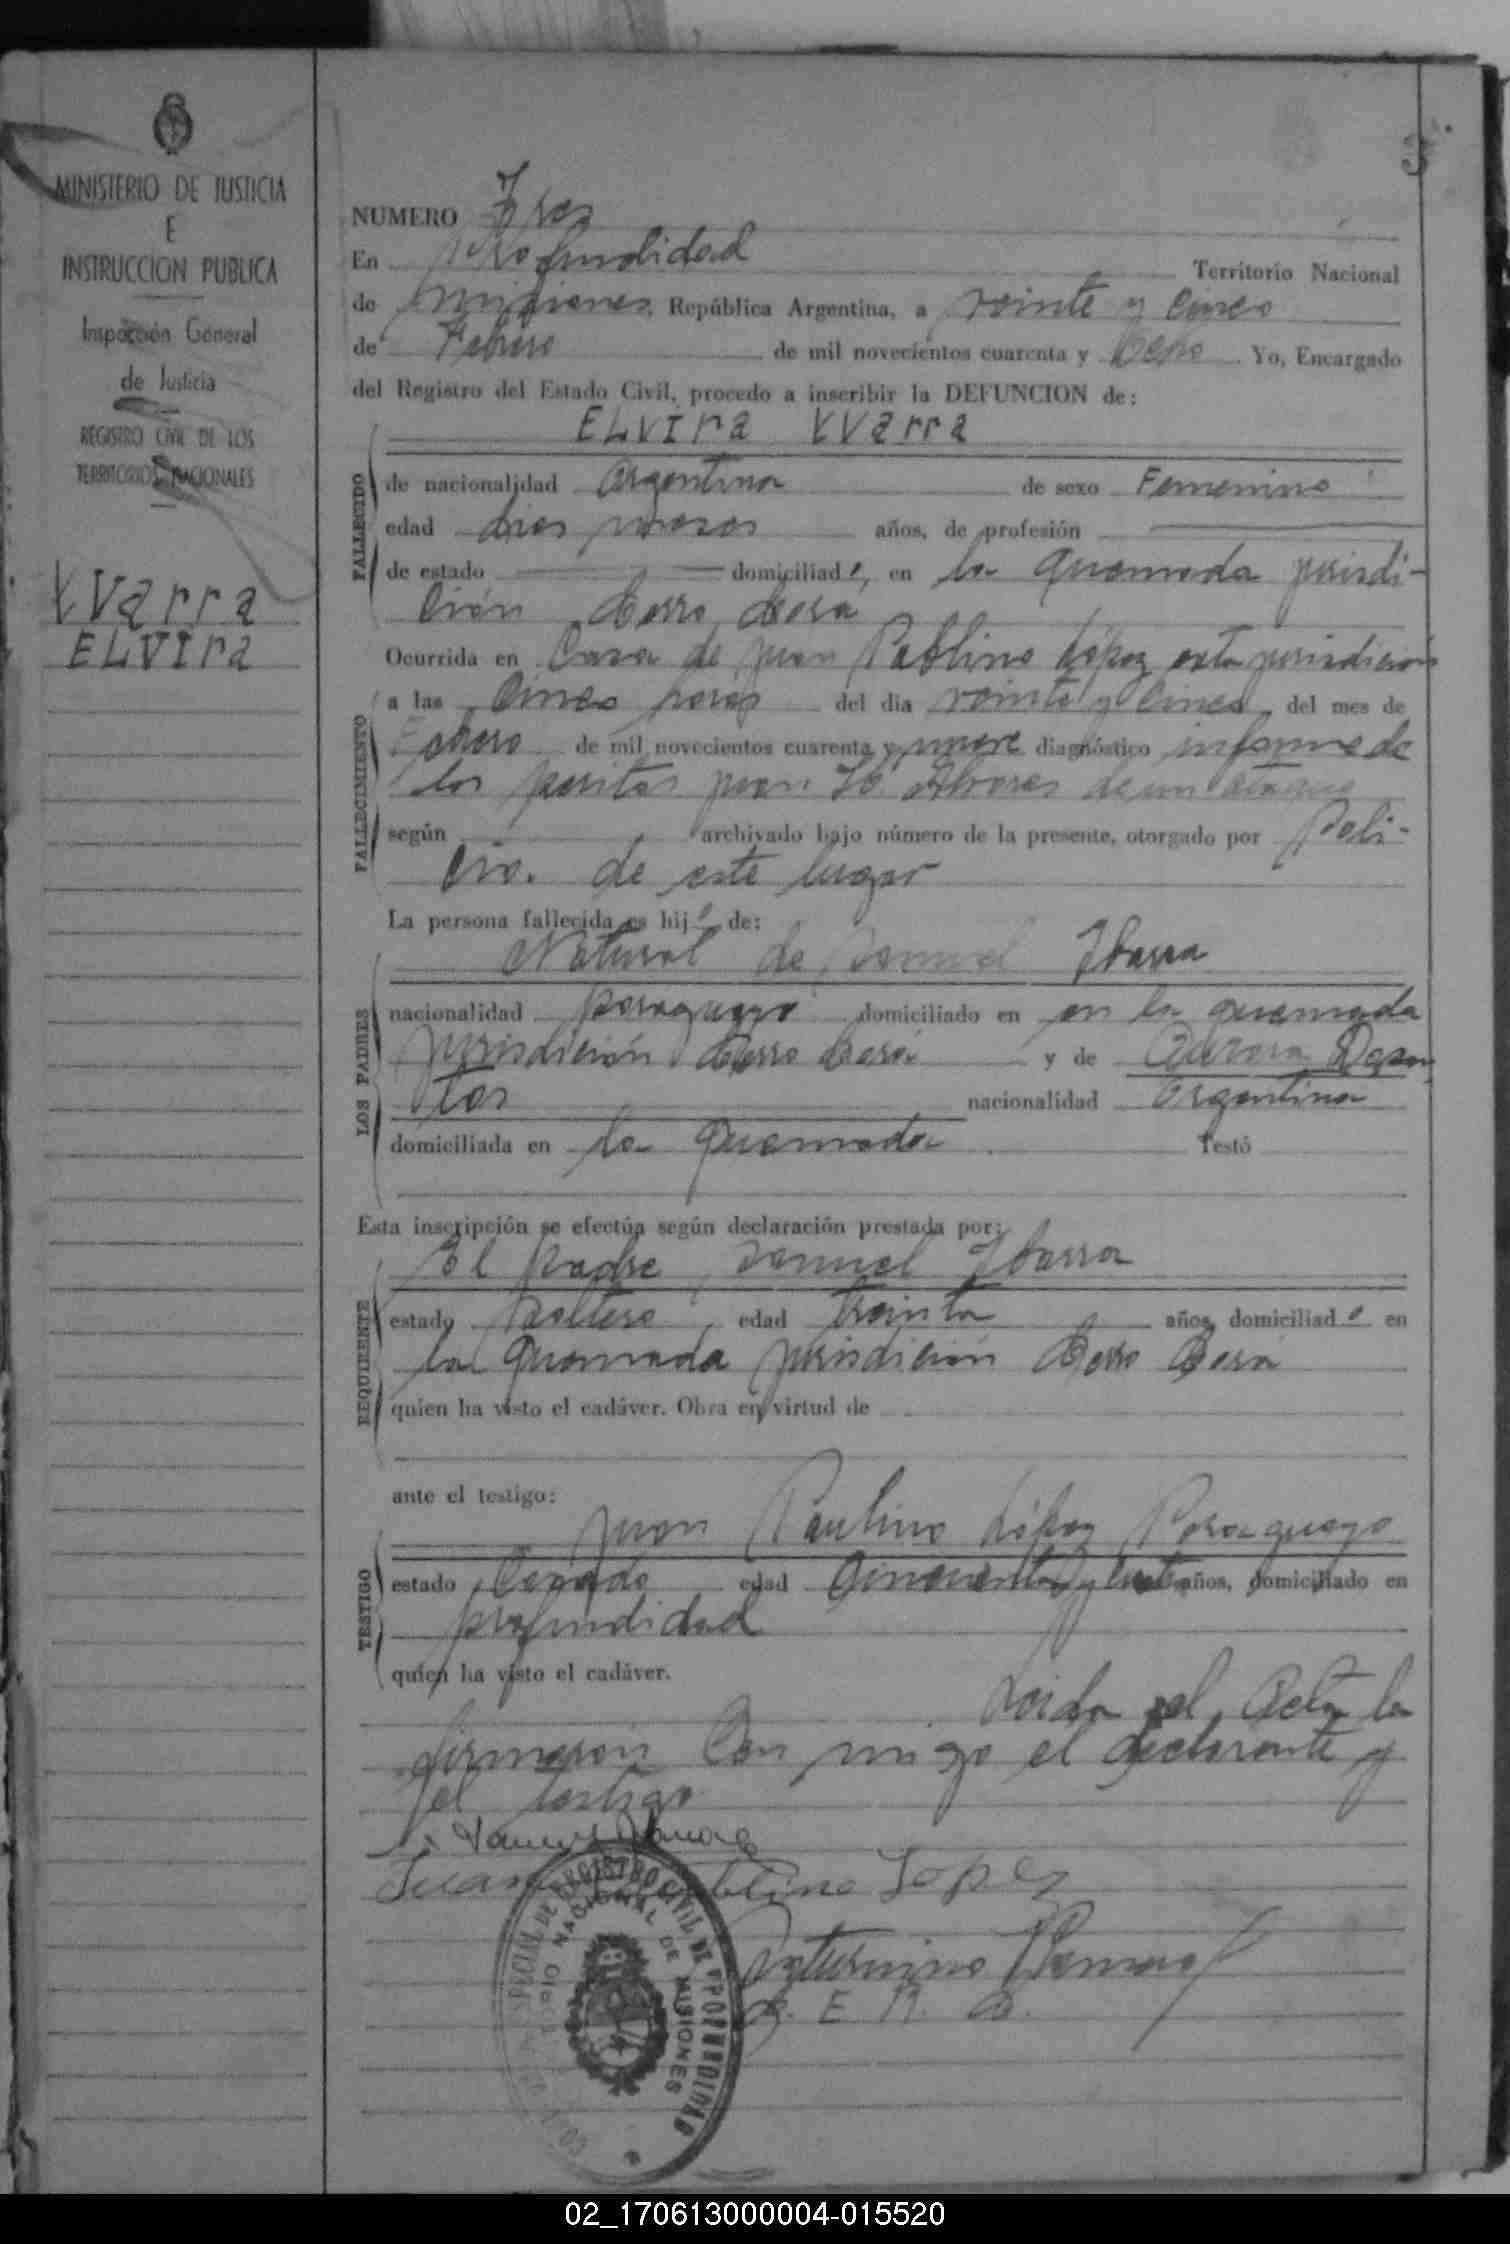 3
MINISTERIO DE JUSTICIA
E
INSTRUCCION PUBLICA
Inspección General
de Justicia
REGISTRO CIVIL DE LOS
TERRITORIOS NACIONALES
YVarra
ELVIra
NUMERO Tres
En profundidad Territorio Nacional
de misiones, República Argentina, a veinte y cinco
de Febrero de mil novecientos cuarenta y . Yo, Encargado
del Registro del Estado Civil, procedo a inscribir la DEFUNCION de:
ELVIra YVarra
FALLECIDO
de nacionalidad Argentina de sexo Femenino
edad dies meses años, de profesión
de estado domiciliad en la quemada jurisdi-
ción Cerro Corá
FALLECIMIENTO
Ocurrida en Casa de juan Pablino López esta jurisdición
a las cinco horas del dia veinte y cinco del mes de
Febrero de mil novecientos cuarenta y nueve diagnóstico informe de
los peritos juan Alvares de un ataque
según archivado bajo número de la presente, otorgado por Poli-
cia. de este lugar
LOS PADRES
La persona fallecida es hij de:
Natural de Ibarra
nacionalidad paraguayo domiciliado en en la quemada
jurisdición Cerro Corá y de Aurora Dosan
tos nacionalidad Argentina
domiciliada en la quemada Testó
REQUIRENTE
Esta inscripción se efectúa según declaración prestada por:
El padre, Ibarra
estado soltero, edad treinta años, domiciliado en
la quemada jurisdición Cerro Corá
quien ha visto el cadáver. Obra en virtud de
TESTIGO
ante el testigo:
juan Paulino López Paraguayo
estado Casado edad años, domiciliado en
profundidad
quien ha visto el cadáver.
Leida el Acta la
firmaron Con migo el declarante y
el testigo
Juan Pablino Lopez
Saturnino
E. R. C.
REGISTRO CIVIL DE PROFUNDIDAD
NACIONAL DE MISIONES
02_170613000004-015520